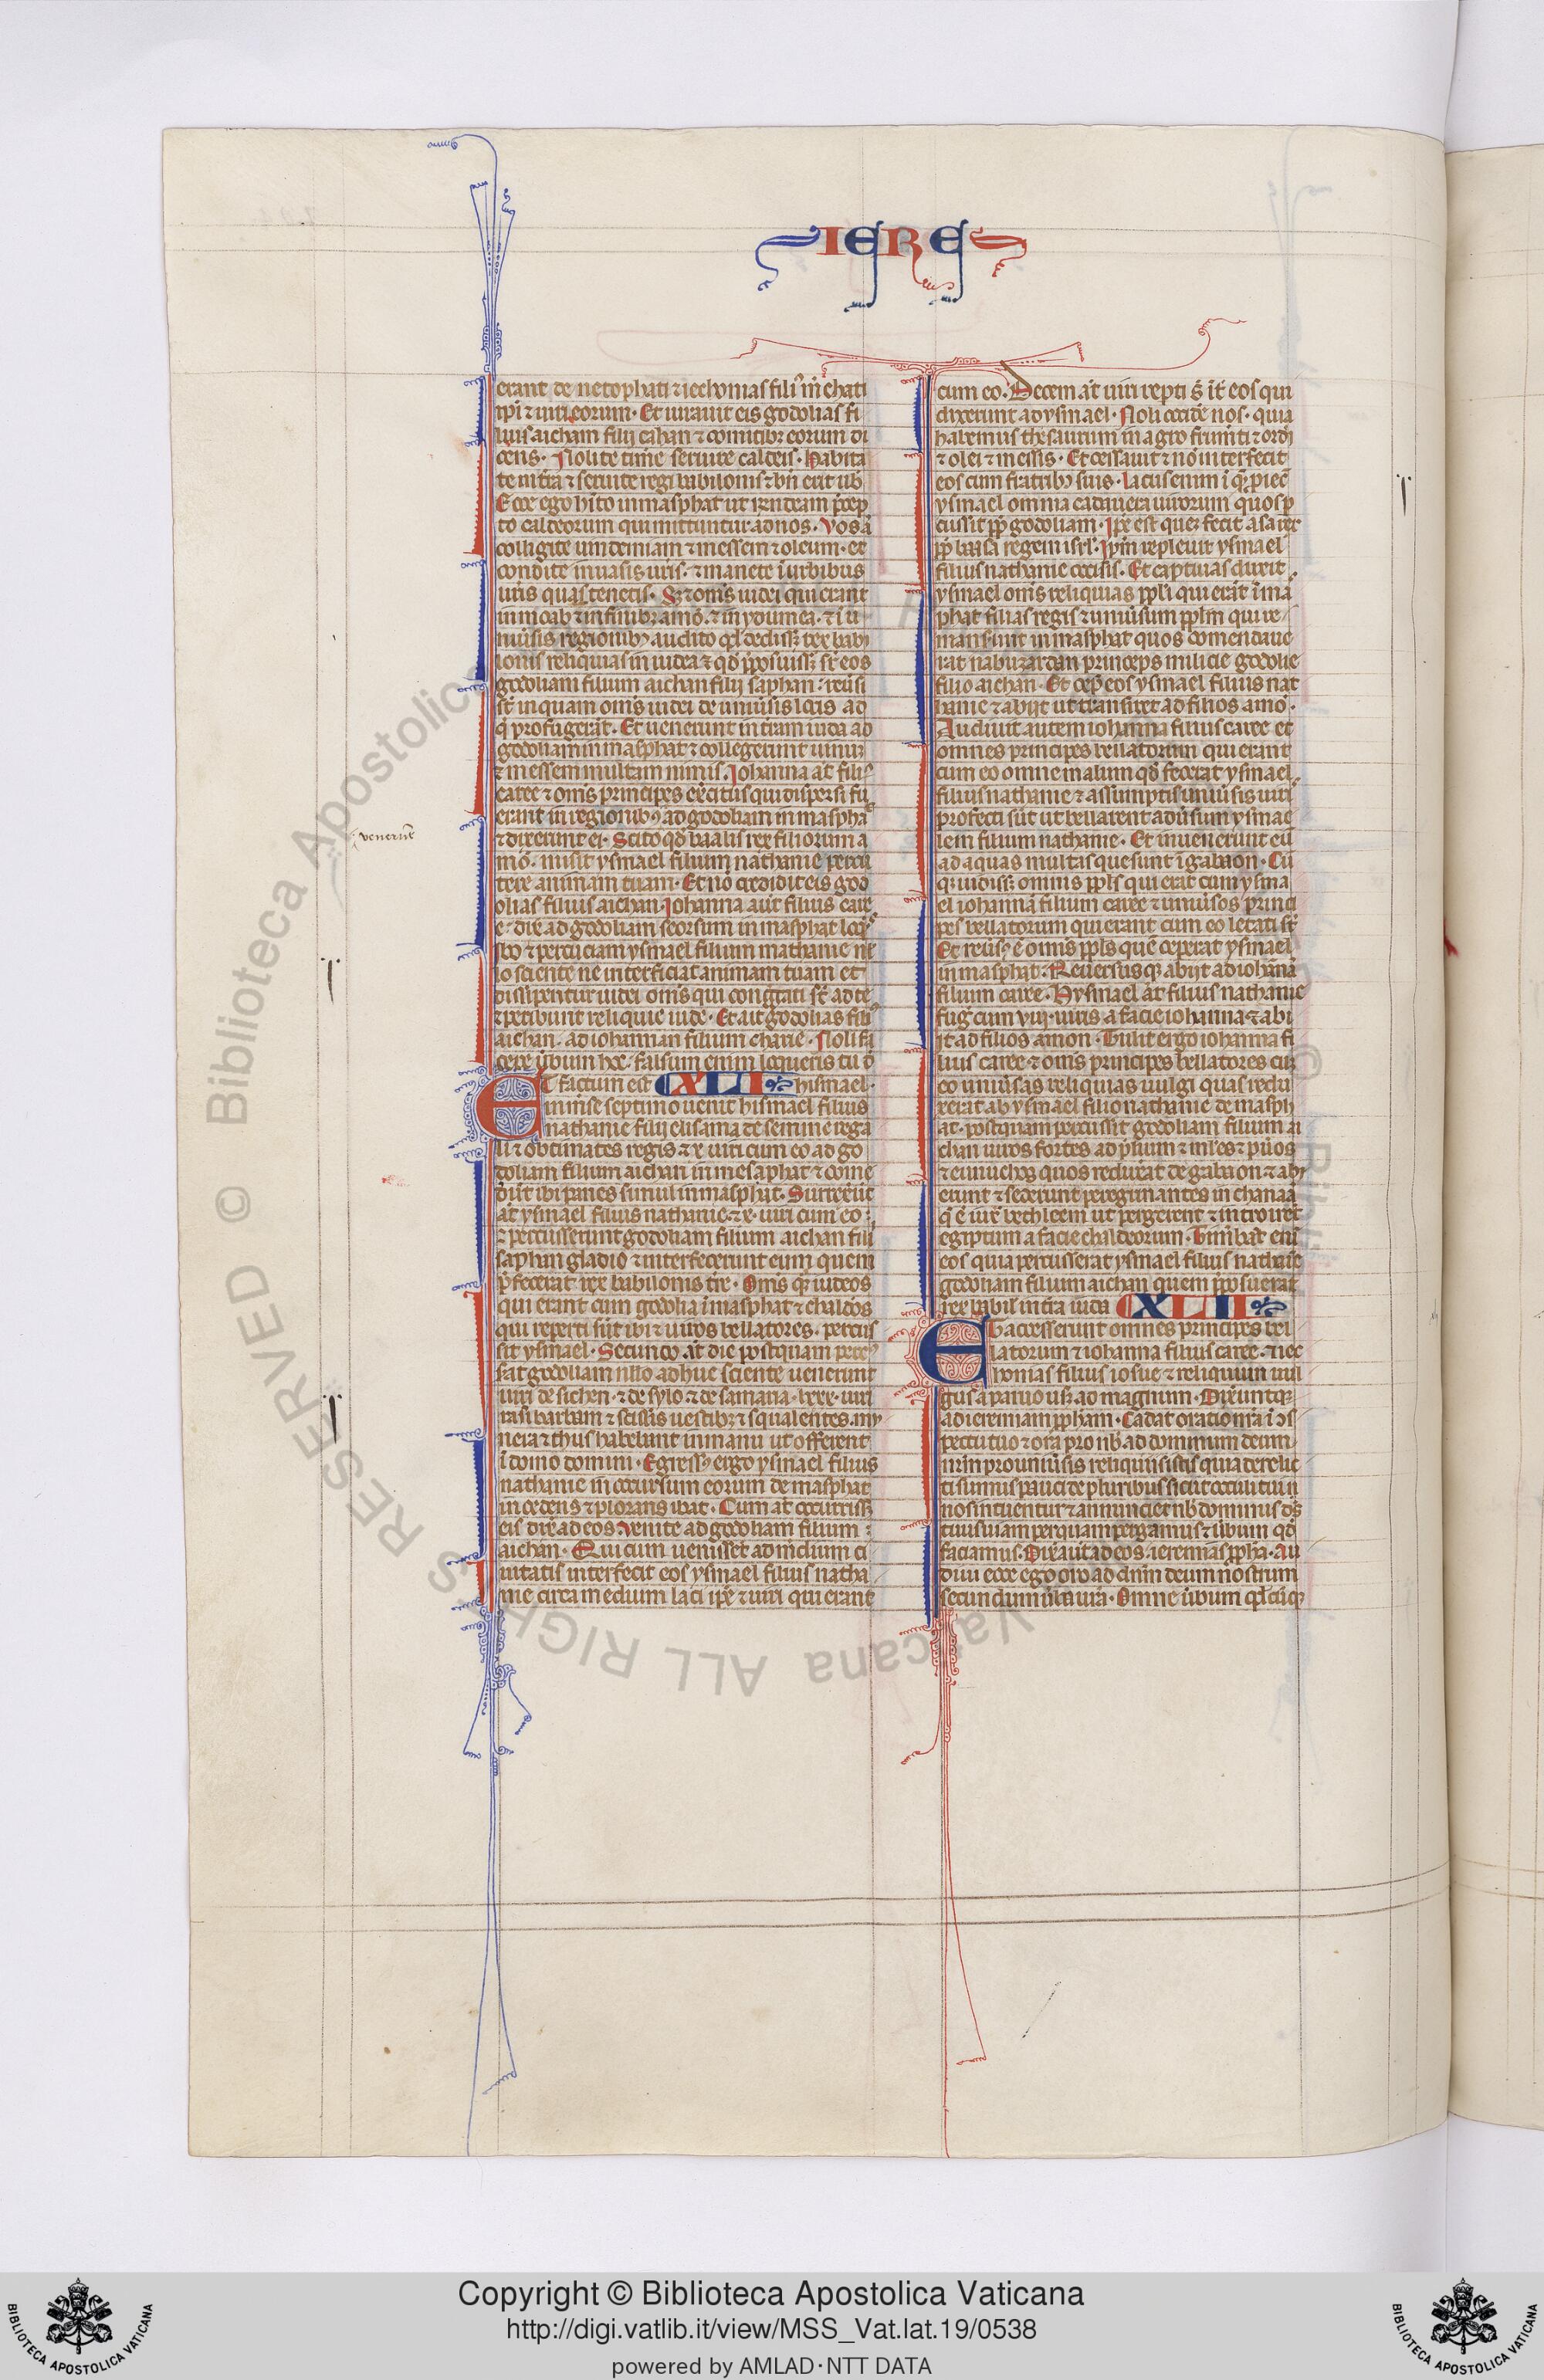 IERE
erant de netophati ⁊ iechonias filiꝰ mechati
ipi ⁊ uiri eorum. Et iurauit eis godolias fi
lius aicham filii cahan ⁊ comitibꝫ eorum di
cens. Nolite time seruire caldeis. habita
te in tra ⁊ seruite regi babilonis ⁊ bn̄ erit uob
Ecce ego hito in masphat ut rn̄deam p̄cep
to caldeorum qui mittuntur ad nos. Vos aū
colligite uindemiam ⁊ messem ⁊ oleum. et
condite in uasis uris. ⁊ manete ī urbibus
uris quas tenetis. Sꝫ ⁊ om̄s iudei qui erant
in moab ⁊ in finibꝫ amō. ⁊ in ydumea. ⁊ ī u
niūsis regionibꝰ audito qd̄ dedissꝫ rex babi
lonis reliquias in iudea ⁊ qd̄ p̄posuissꝫ sr̄ eos
godoliam filium aichan filii saphan: reūsi
st̄ inquam om̄s iudei de uniūsis locis ad
q̄ profugerāt. Et uenerunt in tram iuda ad
godoliam in masphat ⁊ collegerunt uinuꝫ
⁊ messem multam nimis. Iohanna at̄ filiꝰ
caree ⁊ om̄s principes ex̄citus qui dispersi fu
erant in regionibꝰ ad godoliam in masphaᵗ
venerūt
⁊ dixerunt ei. Scito qd̄ baalis rex filiorum a
mō. misit ysmael filium nathanie percu
tere animam tuam. Et nō credidit eis god
olias filius aichan. Iohanna aūt filius care
e. dix̄ ad godoliam seorsum in masphat loqꝰs
Ibo ⁊ percuciam ysmael filium mathanie nł
lo sciente ne interficiat animam tuam et
dissipentur iudei om̄s qui congr̄gati st̄ ad te.
⁊ peribunt reliquie iude. Et ait godolias filiꝰ
aichan. ad iohannan filium charie. Noli fa
cere ūbum hoc. falsum enim loqueris tu d̄
ET factum est XLI hismael.
in mēse septimo uenit hismael filius
nathanie filii elisama de semine rega
li ⁊ obtimates regis ⁊ x uiri cum eo ad go
doliam filium aichan in mesaphat ⁊ come
dūt ibi panes simul in masphat. Surrexūt
at̄ ysmael filius nathanie. ⁊ x. uiri cum eo:
⁊ percusserunt godoliam filium aichan filii
saphan gladio ⁊ interfecerunt eum quem
p̄fecerat rex babilonis tr̄e. Om̄s qꝫ iudeos
qui erant cum godolia ī masphat ⁊ chaldeos
qui reperti sūt ibi ⁊ uiros bellatores. percus
sit ysmael. Secundo at̄ die postquam percus
serat godoliam nłło adhuc sciente uenerunt
uiri de sichen. ⁊ de sylo. ⁊ de samaria. lxxx. uiri
rasi barbam ⁊ scissis uestibꝫ ⁊ squalentes. mu
nera ⁊ thus habebant in manu ut offerent
ī domo domini. Egressꝰ ergo ysmael filius
nathanie in occursum eorum de masphat
incedens ⁊ plorans ibat. Cum at̄ occurrissꝫ
eis dix̄ ad eos. Venite ad godoliam filium:
aichan. Qui cum uenisset ad medium ci
uitatis interfecit eos ysmael filius natha
nie circa medium laci ipē ⁊ uiri qui erant
cum eo. Decem at̄ uiri repti st̄ īt eos qui
dixerunt ad ysmael. Noli occidē nos. quia
habemus thesaurum in agro frumti ⁊ ordi
⁊ olei ⁊ mellis. Et cessauit ⁊ nō interfecit
eos cum fratribꝰ suis. lacus enim ī qꝫ piec
ysmael omnia cadauera uirorum quos p
cussit pp̄ godoliam. Ipē est queꝫ fecit asa rex
pp̄ baasa regem isrl. Ipm repleuit ysmael
filius nathanie occisis. Et captiuas duxit
ysmael om̄s reliquias ppli qui erāt ī ma
phat filias regis ⁊ uniūsum pplm qui re
manserunt in masphat quos comendaue
rat nabuzardan princeps milicie godolie
filio aichan. Et cep̄ eos ysmael filius nat
hanie ⁊ abiit ut transiret ad filios amō.
Audiuit autem iohanna filius caree et
omnes principes bellatorum qui erant
cum eo omne malum qd̄ fecerat ysmael.
filius nathanie ⁊ assumptis uniūsis uiri
profecti sūt ut bellarent adūsum ysmae
lem filium nathanie. Et inuenerunt eū
ad aquas multas que sunt ī gabaon. Cū
qꝫ uidissꝫ omnis ppls qui erat cum ysma
el iohannā filium caree ⁊ uniūsos princi
pes bellatorum qui erant cum eo letati st̄
Et reūsꝰ ē omis ppls que ceperat ysmael
in masphat. Reuersus qꝫ abiit ad iohānā
filium caree. Hysmael at̄ filius nathanie
fuḡ cum viij. uiris a facie iohanna ⁊ abi
it ad filios amon. Tulit ergo iohanna fi
lius caree ⁊ om̄s principes bellatores cuꝫ
eo uniūsas reliquias uulgi quas redu
xerat ab ysmael filio nathanie de masph
at. postquam percussit godoliam filium ai
chan uiros fortes ad p̄lium ⁊ mł'es ⁊ pūos
⁊ eunuchos quos reduxat de gabaon ⁊ abi
erunt ⁊ sederunt peregrinantes in chanaā
q̄ ē iux̄ bethleem ut pergerent ⁊ introirēt
egiptum a facie chaldeorum. Timībāt enī
eos quia percusserat ysmael filius nathanie
godoliam filium aichan quem p̄posuerat
rex babil̄ in tra iuda XLII
ET accesserunt omnes principes bel
latorum ⁊ iohanna filius caree. ⁊ iec
honias filius iosue ⁊ reliquum uul
gus a paruo usꝫ ad magnum. Dixūntqꝫ
ad ieremiam ppham. Cadat oratio nra ī ↄs
pectu tuo ⁊ ora pro nb̄ ad dominum deum
nrm pro uniūsis reliquiis istis quia derelic
ti sumus pauci de pluribus sicut occuli tui
nos intuentur ⁊ annunciet nb̄ dominus ds̄
tuus uiam per quam pergamus ⁊ ūbum qd̄
faciamus. Dix̄ aut̄ ad eos. ieremias ppha. Au
diui ecce ego oro ad dnm deum nostrum
secundum ūba ura. Omne ūbum qd̄cūqꝫ
© Biblioteca Apostolica Vaticana ALL RIGHTS RESERVED
Copyright © Biblioteca Apostolica Vaticana
http://digi.vatlib.it/view/MSS_Vat.lat.19/0538
powered by AMLAD·NTT DATA
BIBLIOTECA APOSTOLICA VATICANA
BIBLIOTECA APOSTOLICA VATICANA